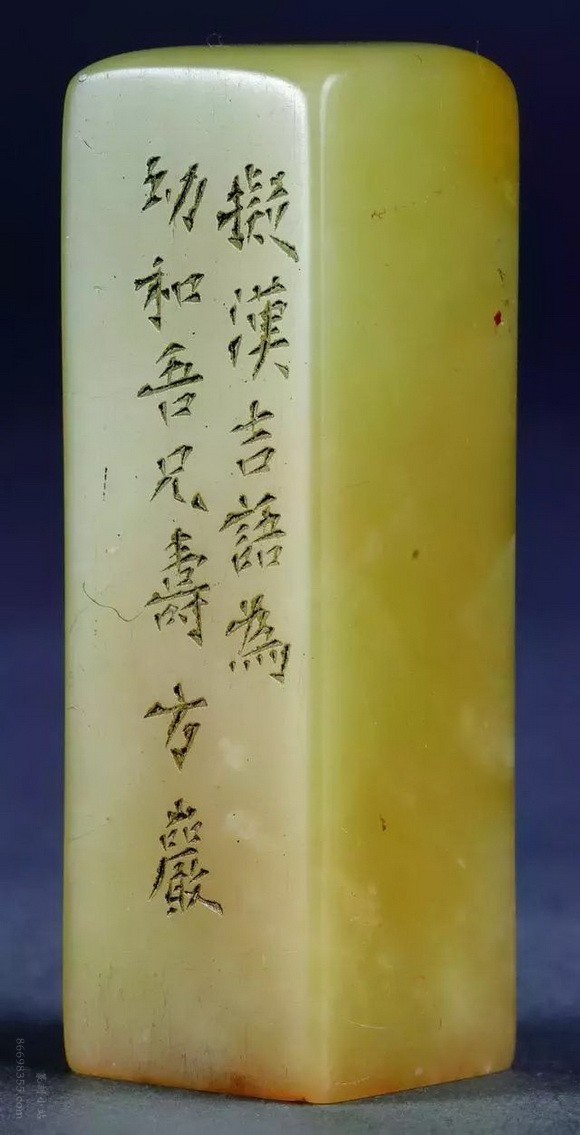 擬漢吉語為
幼和吾兄壽方巖
86698355.com